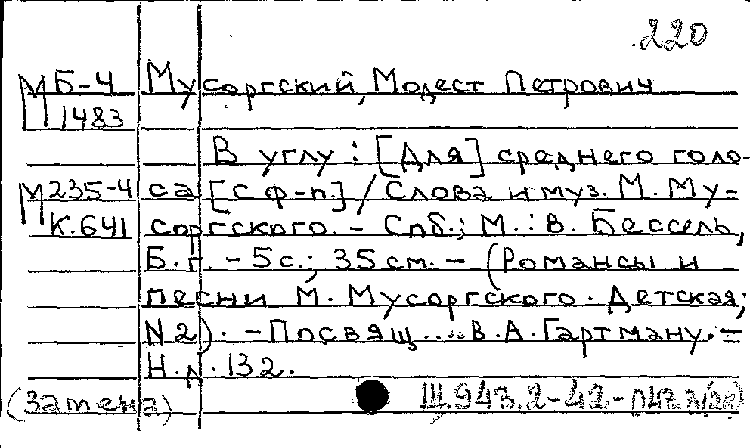 220
М Б-4 Мусоргский, Модест Петрович
1483
В углу : [Для] среднего голо-
М 235-4 са [с ф-п.] / Слова и муз. М. Му-
К.641 соргского. - Спб.; М. : В. Бессель,
Б.г. - 5 с.; 35 см. - (Романсы и
песни М. Мусоргского. Детская;
N 2). - Посвящ... В.А. Гартману. =
Н.п. 132.
(Замена) Ш.943.2-42-